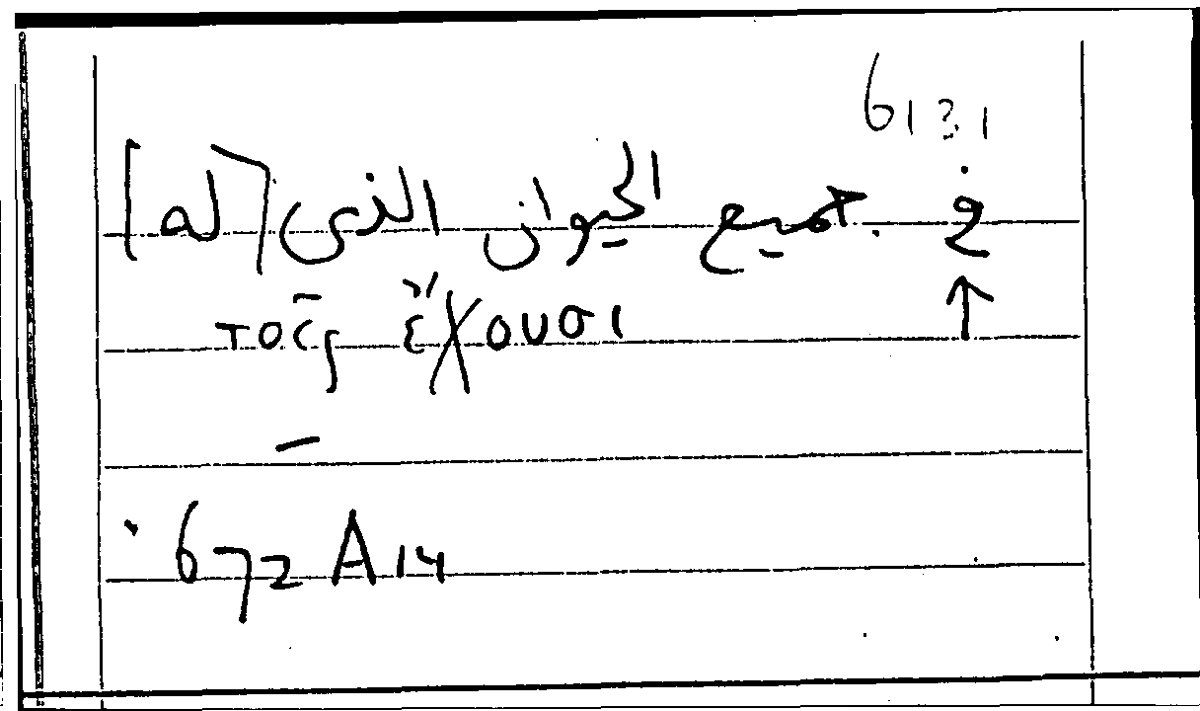 61 31
في جميع الحيوان الذى [له]
τοῖς ἔχουσι
–
672 A 14